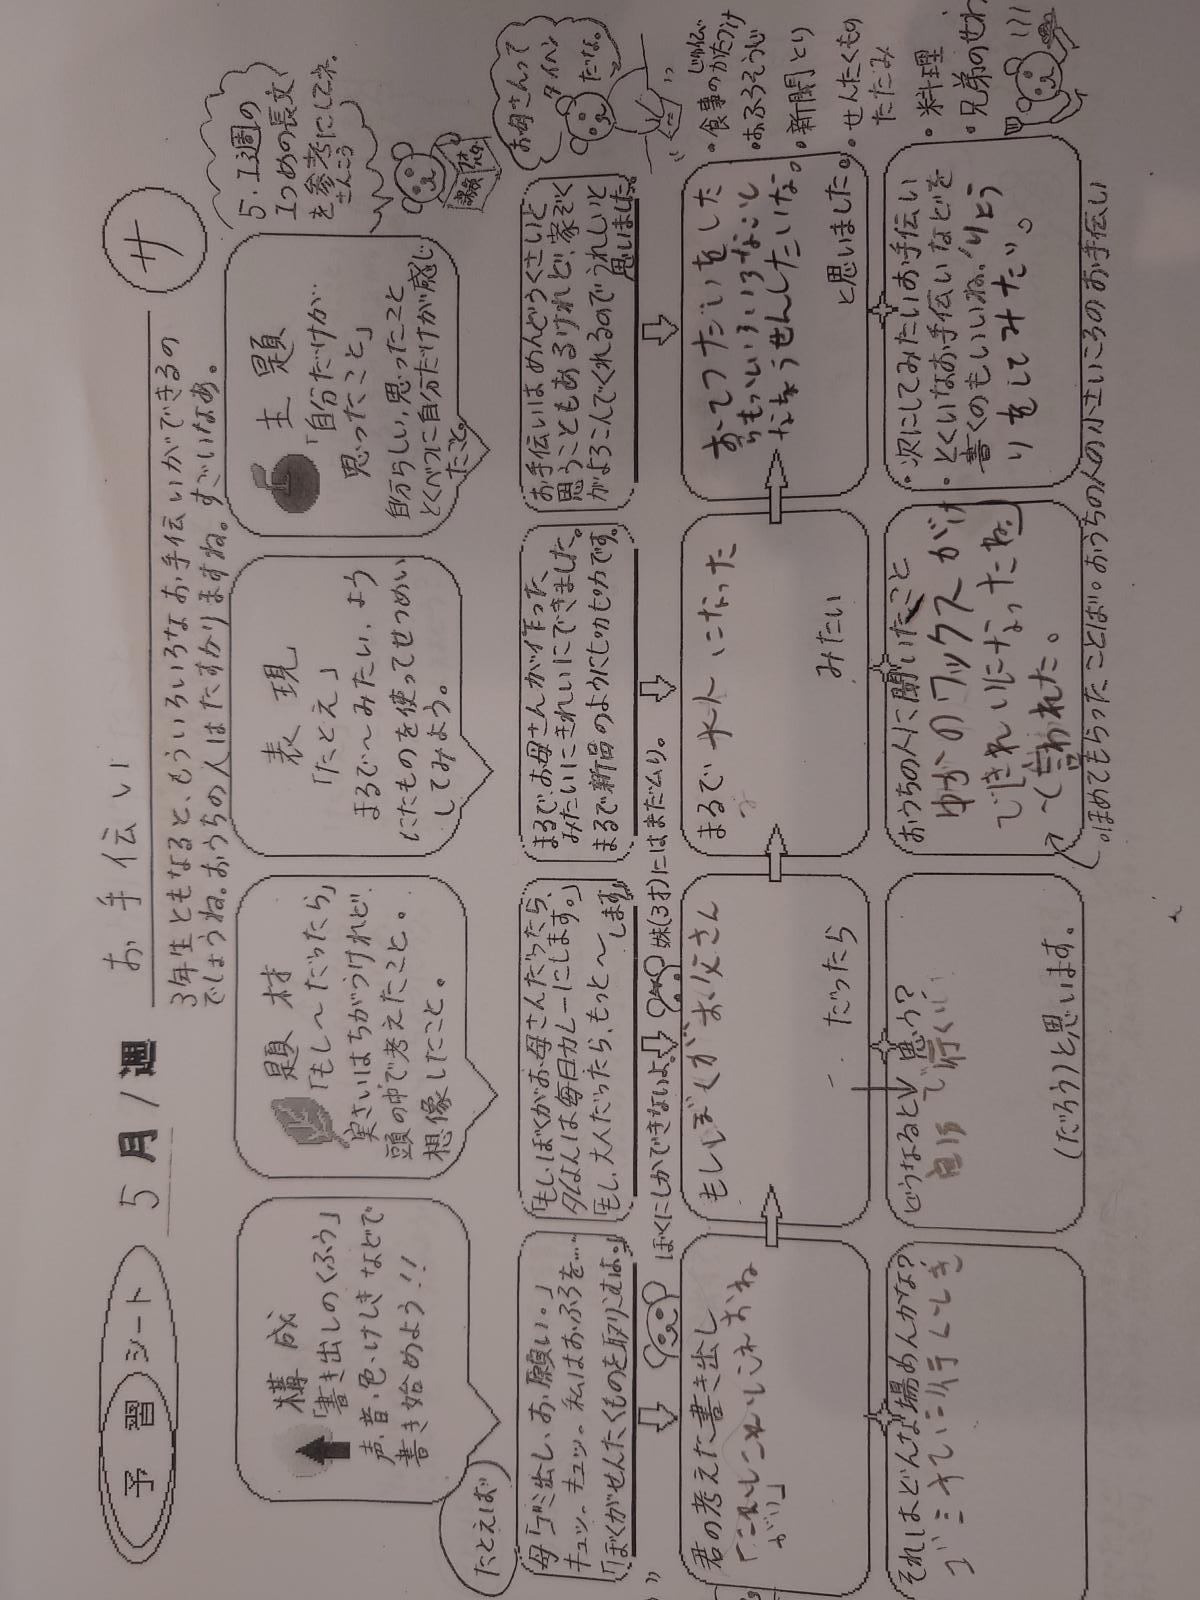 予習シート 5月1週 お手伝い サ
3年生ともなると、もういろいろなお手伝いができるの
でしょうね。おうちの人はたすかりますね。すごいなあ。
5.1週の
1つめの長文
を参考にしてネ。
さんこう
構成
「書き出しのくふう」
声・音・色・けしきなどで
書き始めよう!!
題材
「もし〜だったら」
実さいはちがうけれど、
頭の中で考えたこと。
想像したこと。
表現
「たとえ」
まるで〜みたい、よう
にたものを使ってせつめい
してみよう。
主題
「自分だけが
思ったこと」
自分らしい、思ったこと
とくべつに自分だけが感じ
たこと。
たとえば
母「ゴミ出し、お願い。」
キュッ。キュッ。私はおふろを…
「ぼくがせんたくものを取りこむよ。」
「もし、ぼくがお母さんだったら、
夕ごはんは毎日カレーにします。」
「もし、大人だったら、もっと〜します。
まるで、お母さんが作った
みたいにきれいにできました。
まるで新品のようにピカピカです。
お手伝いはめんどうくさいと
思うこともあるけれど、家ぞく
がよろこんでくれるのでうれしいと
思いました。
お母さんって
タイヘン
だな。
ぼくにしかできないよ。
妹(3才)にはまだムリ。
君の考えた書き出し
がい」
もしぼくがお父さん
だったら
まるで大人になった
みたい
おてつだいをした
らもっといろいろないし
なちょうせんしたいな。
と思いました。
・食事のかたづけ
・おふろそうじ
・新聞とり
・せんたくもの
たたみ
・料理
・兄弟のせわ
それはどんな場めんかな?
ゴミすてに行くとき
どうなると思う?
自分で行く
(だろう)と思います。
おうちの人に聞いたこと
ゆかのワックスがけ
できれいになったね。
〜(と言われた。
・次にしてみたいお手伝い
・とくいなお手伝いなどを
書くのもいいね。りょう
りをしてみたい。
・ほめてもらったことば
・おうちの人の小さいころのお手伝い